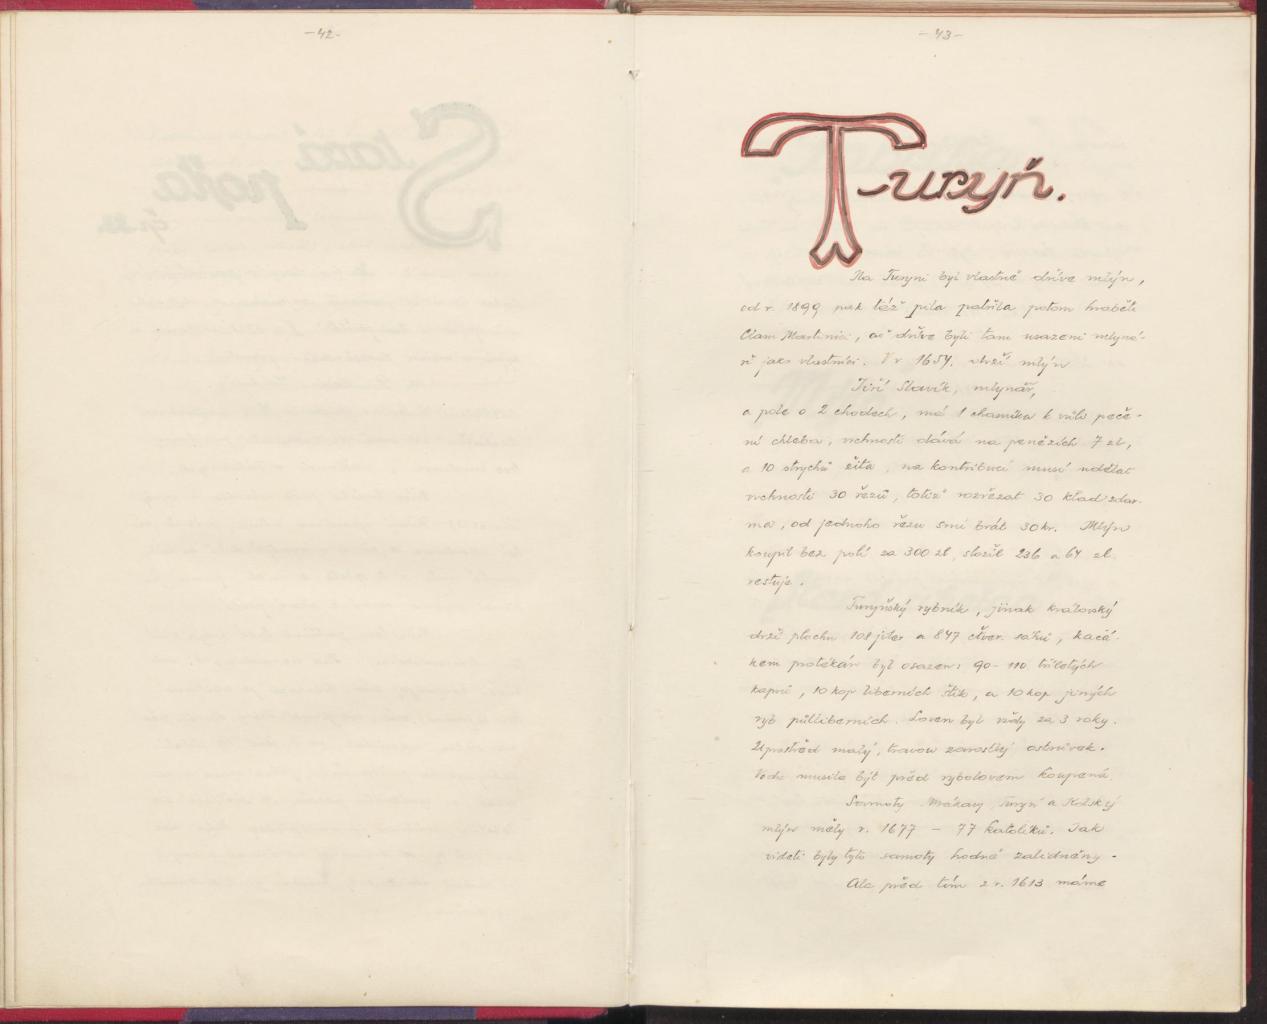 -42-
-43-
Turyň.
Na Turyni byl vlastně dříve mlýn,
od r. 1899 pak též pila patřila potom hraběti
Clam Martinici, ač dříve byli tam usazeni mlyná-
ři jako vlastníci. V r 1654. drží mlýn
Jiří Slavík, mlynář,
a pole o 2 chodech, má 1 k vůli peče-
ní chleba, vrchnosti dává na penězích 7 zl,
a 10 strychů žita, na kontribuci musí udělat
vrchnosti 30 řezů, totiž rozřezat 30 klad zdar-
ma, od jednoho řezu smí brát 30 kr. Mlýn
koupil bez polí za 300 zl, složil 236 a 64 zl
restuje.
Turyňský rybník, jinak královský
drží plochu 108 jiter a 847 čtver. sáhů, Kačá-
kem protékán byl osazen: 90-110 tříletých
kaprů, 10 kop liberních štik, a 10 kop jiných
ryb půlliberních. Loven byl vždy za 3 roky.
Uprostřed malý, travou zarostlý ostrůvek.
Voda musila být před rybolovem koupená.
Samoty Mrákavy, Turyň a
mlýn měly r. 1677 - 77 katolíků. Jak
viděti byly tyto samoty hodně zalidněny.
Ale před tím z r. 1613 máme